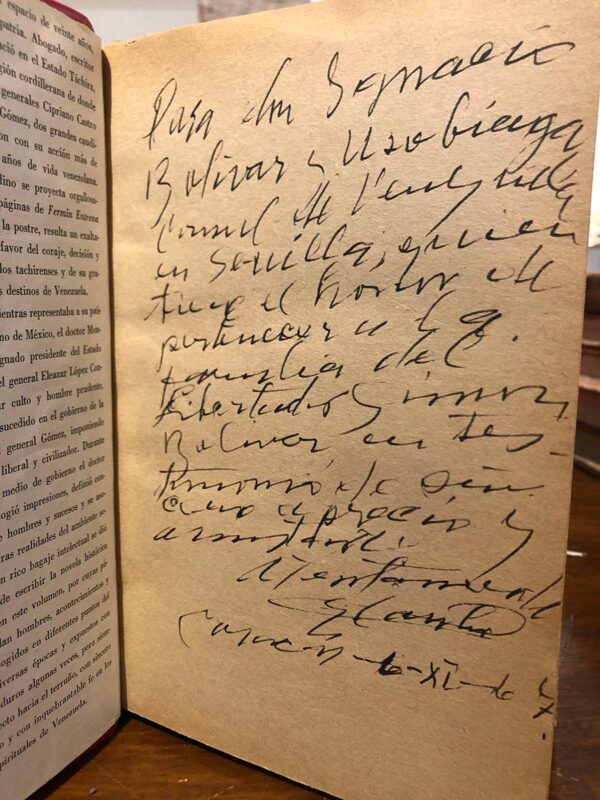 espacio de veinte años,
patria. Abogado, escritor
ació en el Estado Táchira,
gión cordillerana de donde
generales Cipriano Castro
Gómez, dos grandes caudi-
on con su acción más de
años de vida venezolana.
lino se proyecta orgullosa-
páginas de Fermín Entrena
la postre, resulta un exalta-
favor del coraje, decisión y
los tachirenses y de su gra-
s destinos de Venezuela.
ientras representaba a su país
no de México, el doctor Mon-
gnado presidente del Estado
el general Eleazar López Con-
ar culto y hombre prudente,
sucedido en el gobierno de la
general Gómez, imponiendo
liberal y civilizador. Durante
medio de gobierno el doctor
ogió impresiones, definió con-
hombres y sucesos y se aso-
ras realidades del ambiente
n rico bagaje intelectual se dió
de escribir la novela histórica
en este volumen, por cuyas pá-
lan hombres, acontecimientos y
ogidos en diferentes puntos del
iversas épocas y expuestos con
duros algunas veces, pero siem-
ecto hacia el terruño, con sincero
o y con inquebrantable fe en los
spirituales de Venezuela.
Para don Ignacio
Bolivar y Usobiaga
Consul de Venezuela
en Sevilla, quien
tiene el honor de
pertenecer a la
familia del
Libertador Simon
Bolivar en tes-
timonio de sin
cero aprecio y
amistad.
Atentamente
6-XI-6